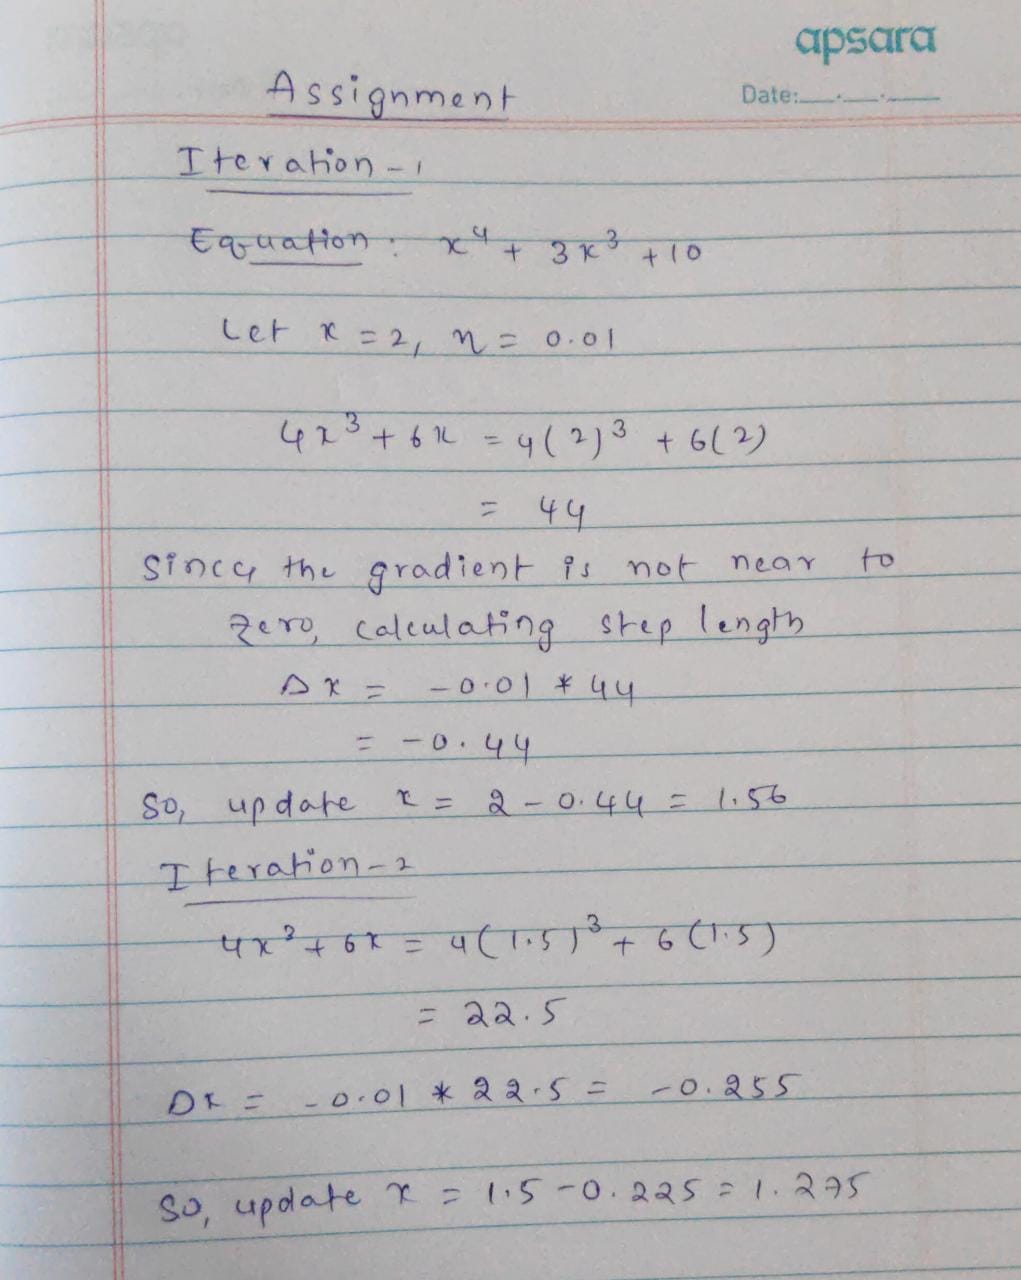 apsara
Assignment
Date:
Iteration-1
Equation: x⁴ + 3x³ + 10
Let x = 2, η = 0.01
4x³ + 6x = 4(2)³ + 6(2)
= 44
Since the gradient is not near to
zero, calculating step length
Δx = -0.01 * 44
= -0.44
So, update x = 2 - 0.44 = 1.56
Iteration-2
4x³ + 6x = 4(1.5)³ + 6(1.5)
= 22.5
Δx = -0.01 * 22.5 = -0.255
So, update x = 1.5 - 0.225 = 1.275